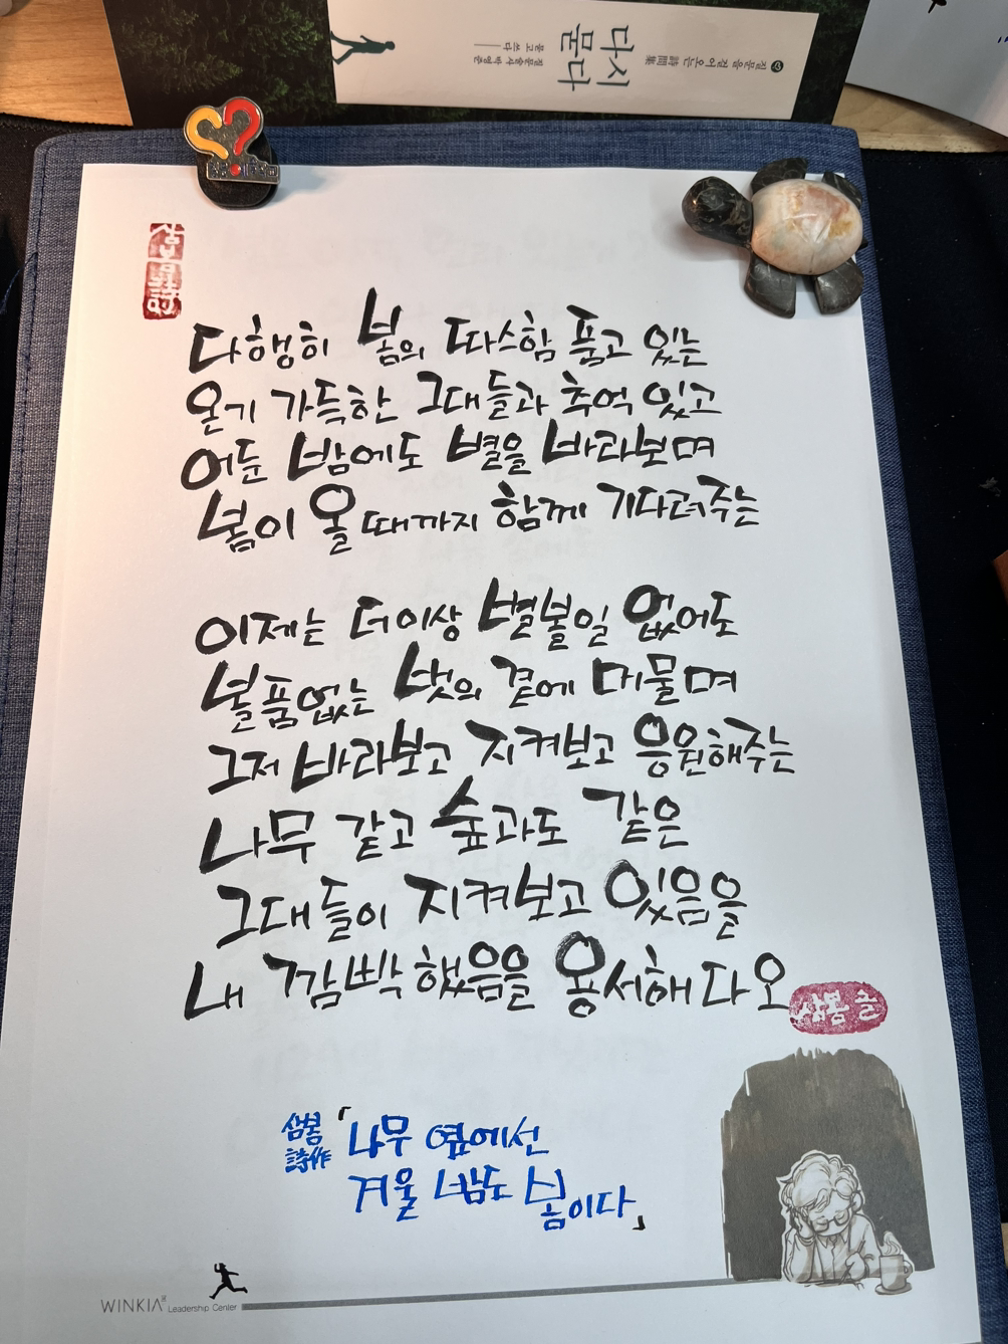 다시
묻다
질문을 걸어 오는 詩間集
질문술사 박영준
묻고 쓰다
다행히 봄의 따스함 품고 있는
온기 가득한 그대들과 추억 있고
어둔 밤에도 별을 바라보며
봄이 올 때까지 함께 기다려주는
이제는 더이상 별볼일 없어도
볼품없는 벗의 곁에 머물며
그저 바라보고 지켜보고 응원해주는
나무 같고 숲과도 같은
그대들이 지켜보고 있음을
내 깜빡했음을 용서해다오
삼봄 글
삼봄
詩作
「나무 옆에선
겨울 밤도 봄이다」
WINKIA
Leadership Center